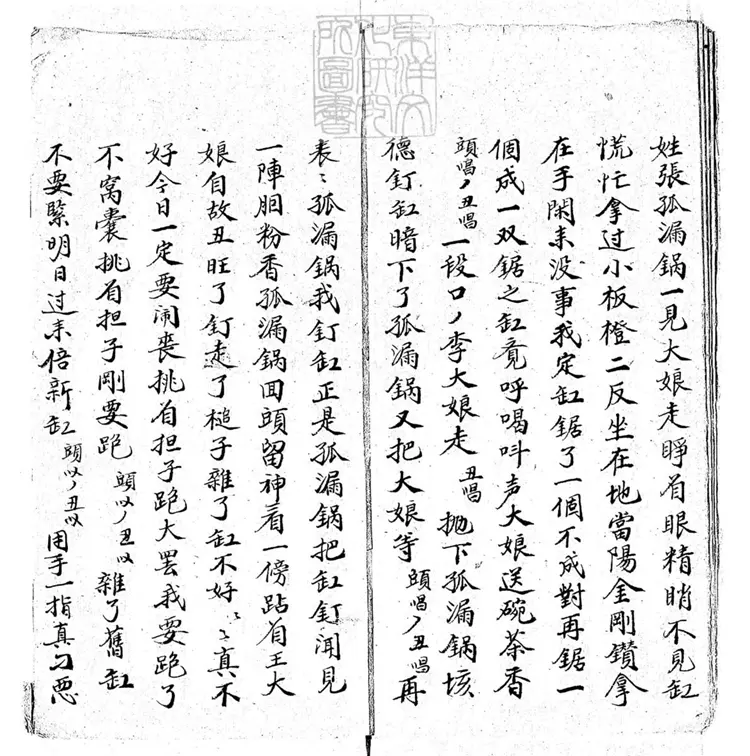 姓張孤漏鍋一見大娘走睜着眼精瞧不見缸
慌忙拿过小板橙二反坐在地當陽金剛鑽拿
在手閑来没事我定缸鋸了一個不成對再鋸一
個成一双鋸之缸竟呼喝叫声大娘送碗茶香
頭唱ノ丑唱一段口ノ李大娘走丑唱抛下孤漏鍋垓
德釘缸暗下了孤漏鍋又把大娘等頭唱ノ丑唱再
表〻孤漏鍋我釘缸正是孤漏鍋把缸釘闻見
一陣胭粉香孤漏鍋回頭留神看一傍跕着王大
娘自故丑旺了釘走了槌子雜了缸不好〻〻真不
好今日一定要闹喪挑着担子跑大罢我要跑了
不窩囊挑着担子剛要跑頭以ノ丑以雜了舊缸
不要緊明日过来倍新缸頭以ノ丑以用手一指真可惡
東洋文化研究所圖書